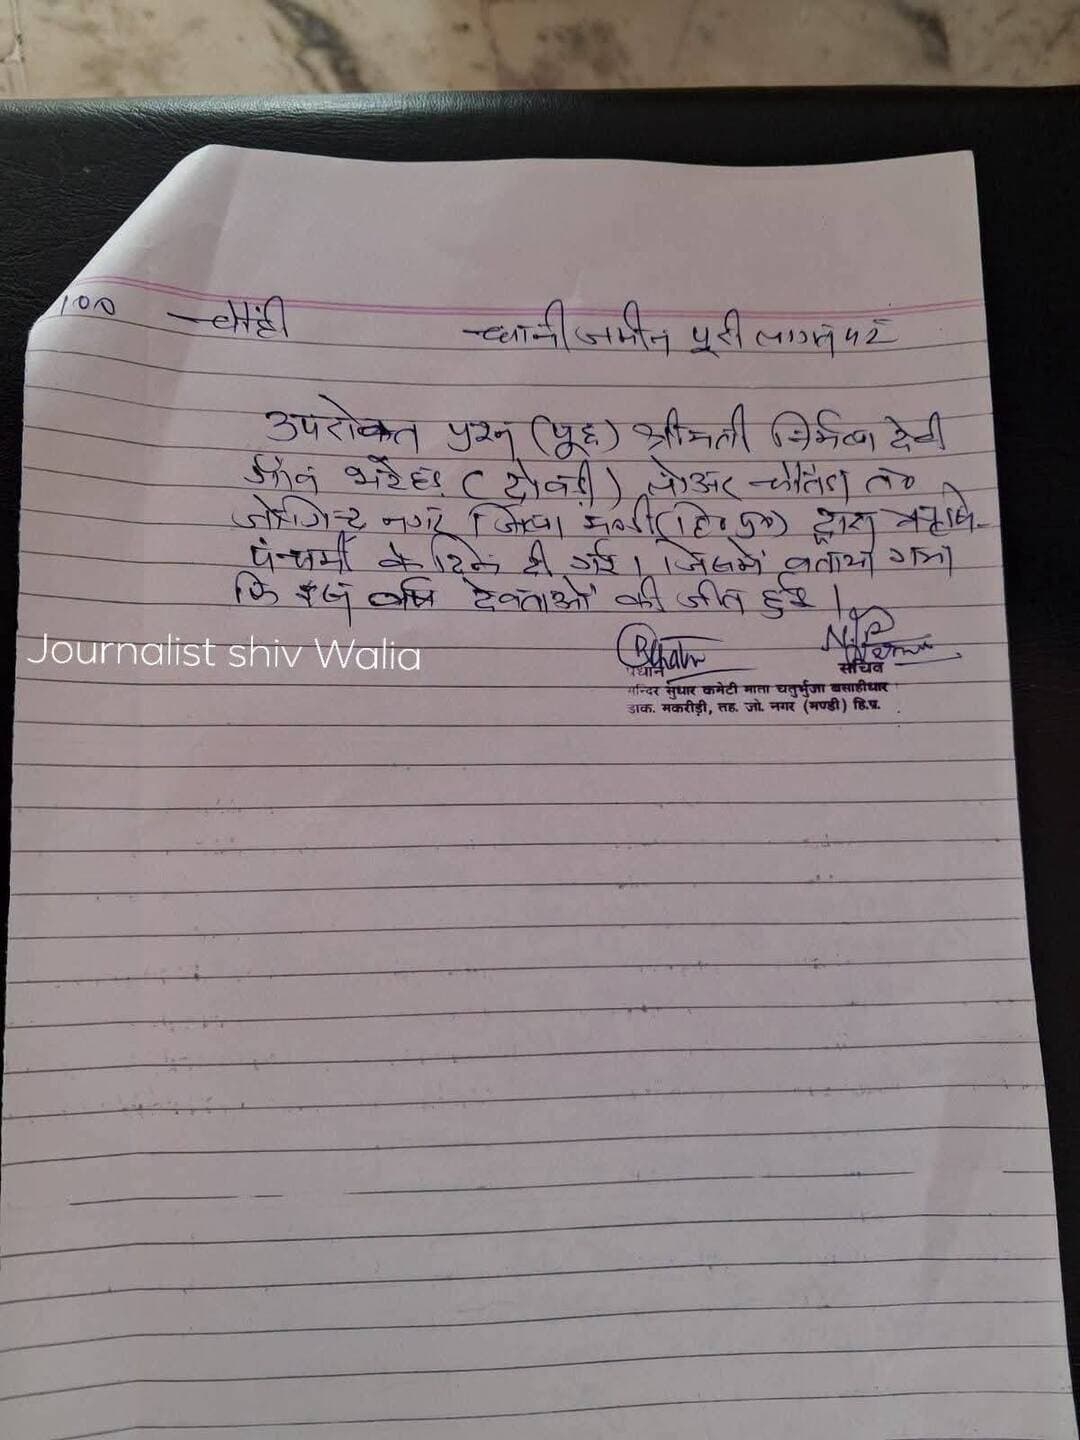 100 चौंही धानी जमीन पूरी लागत पर
उपरोक्त प्रश्न (पूछ) श्रीमती निर्मला देवी
गांव भरेहड़ ( ) लोअर चौंतड़ा त०
जोगिन्द्र नगर जिला मण्डी (हि० प्र०) द्वारा ऋषि-
पंचमी के दिन दी गई। जिसमें बताया गया
कि इस वर्ष देवताओं की जीत हुई।
Journalist shiv Walia
प्रधान सचिव
मन्दिर सुधार कमेटी माता चतुर्भुजा बसाहीधार
डाक. मकरीड़ी, तह. जो. नगर (मण्डी) हि.प्र.